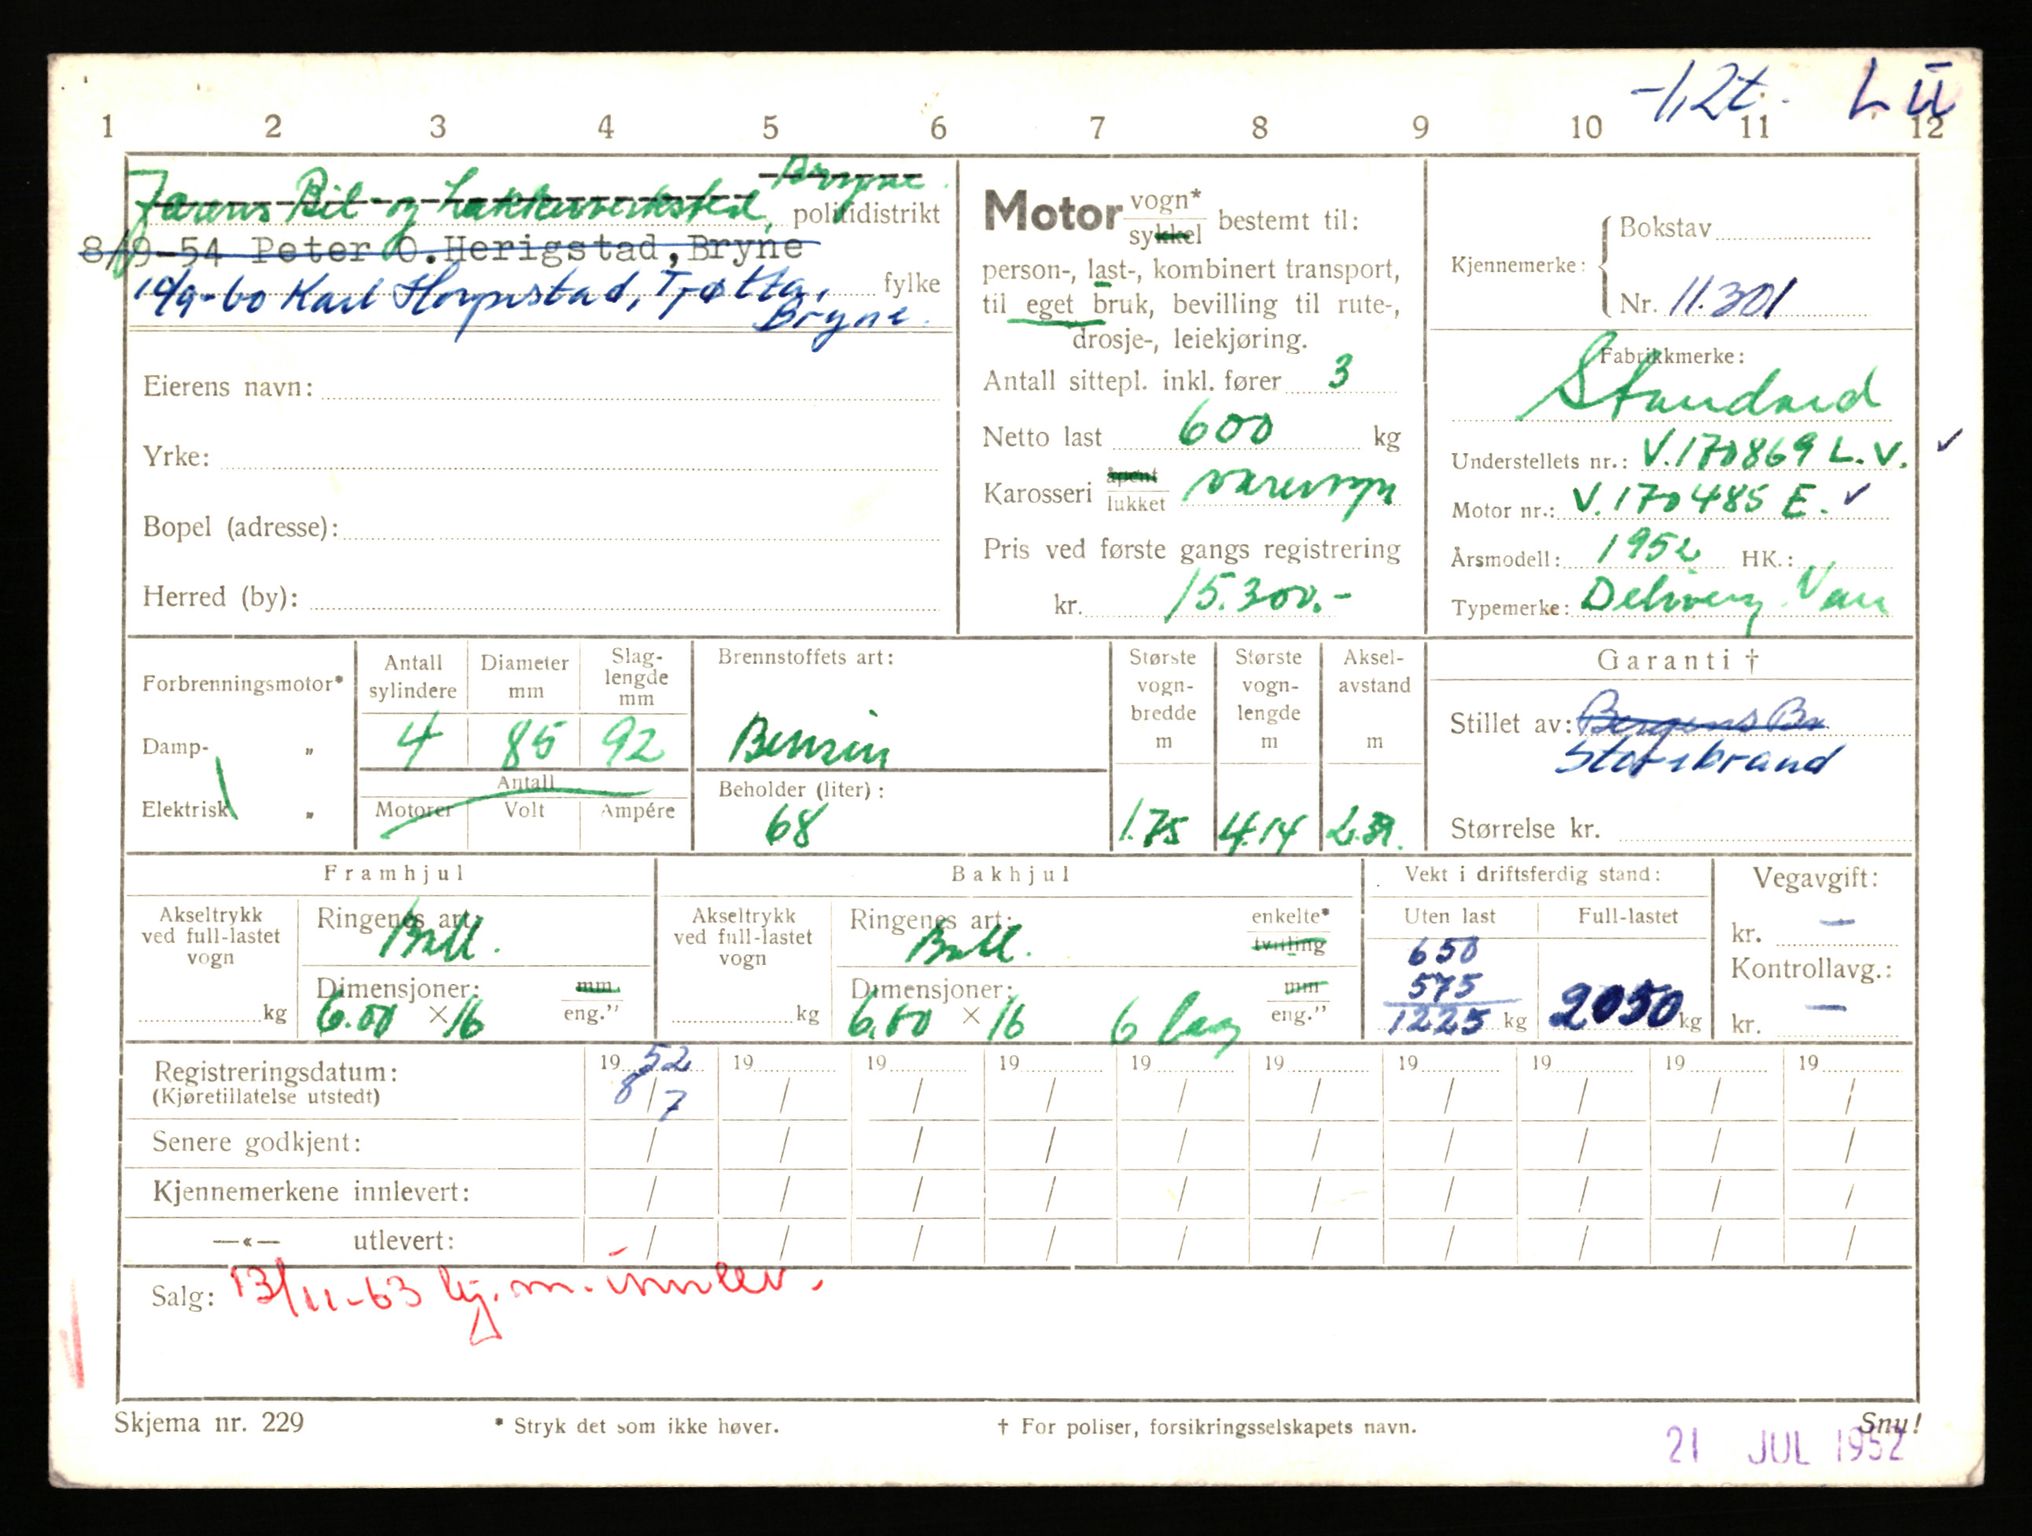 -1,2t. L II
1 2 3 4 5 6 7 8 9 10 11 12
Bryne
Jærens Bil og Lakkverksted, politidistrikt
8/9-54 Peter O.Herigstad,Bryne
10/9-60 Karl Horpestad, Trøtta, fylke
Bryne.
Eierens navn:
Yrke:
Bopel (adresse):
Herred (by):
Motor vogn* sykkel bestemt til:
person-, last-, kombinert transport,
til eget bruk, bevilling til rute-,
drosje-, leiekjøring.
Antall sittepl. inkl. fører 3
Netto last 600 kg
Karosseri åpent lukket varevogn
Pris ved første gangs registrering
kr. 15.300.-
Kjennemerke: Bokstav
Nr. 11.301
Fabrikkmerke:
Standard
Understellets nr.: V.170869 L.V. ✓
Motor nr.: V.170485 E. ✓
Årsmodell: 1952 HK.:
Typemerke: Delivery Van
Forbrenningsmotor*
Damp- „
Elektrisk „
Antall sylindere Diameter mm Slag-lengde mm
4 85 92
Antall
Motorer Volt Ampére
Brennstoffets art:
Bensin
Beholder (liter):
68
Største vogn-bredde m Største vogn-lengde m Aksel-avstand m
1.75 4.14 2.39.
Garanti †
Stillet av: Bergens Br
Storebrand
Størrelse kr.
Framhjul
Akseltrykk ved full-lastet vogn
kg
Ringenes art:
Ball.
Dimensjoner: mm. eng.”
6.00 × 16
Bakhjul
Akseltrykk ved full-lastet vogn
kg
Ringenes art: enkelte* tvilling
Ball.
Dimensjoner: mm eng.”
6.00 × 16 6 lag
Vekt i driftsferdig stand:
Uten last Full-lastet
650
575
1225 kg 2050 kg
Vegavgift:
kr. —
Kontrollavg.:
kr. —
Registreringsdatum: 19 52 19 19 19 19 19 19 19 19 19
(Kjøretillatelse utstedt) 8/7 / / / / / / / / /
Senere godkjent: / / / / / / / / / /
Kjennemerkene innlevert: / / / / / / / / / /
—«— utlevert: / / / / / / / / / /
Salg: 13/11-63 kj.m. innlev.
Skjema nr. 229 * Stryk det som ikke høver. † For poliser, forsikringsselskapets navn. Snu!
21 JUL 1952